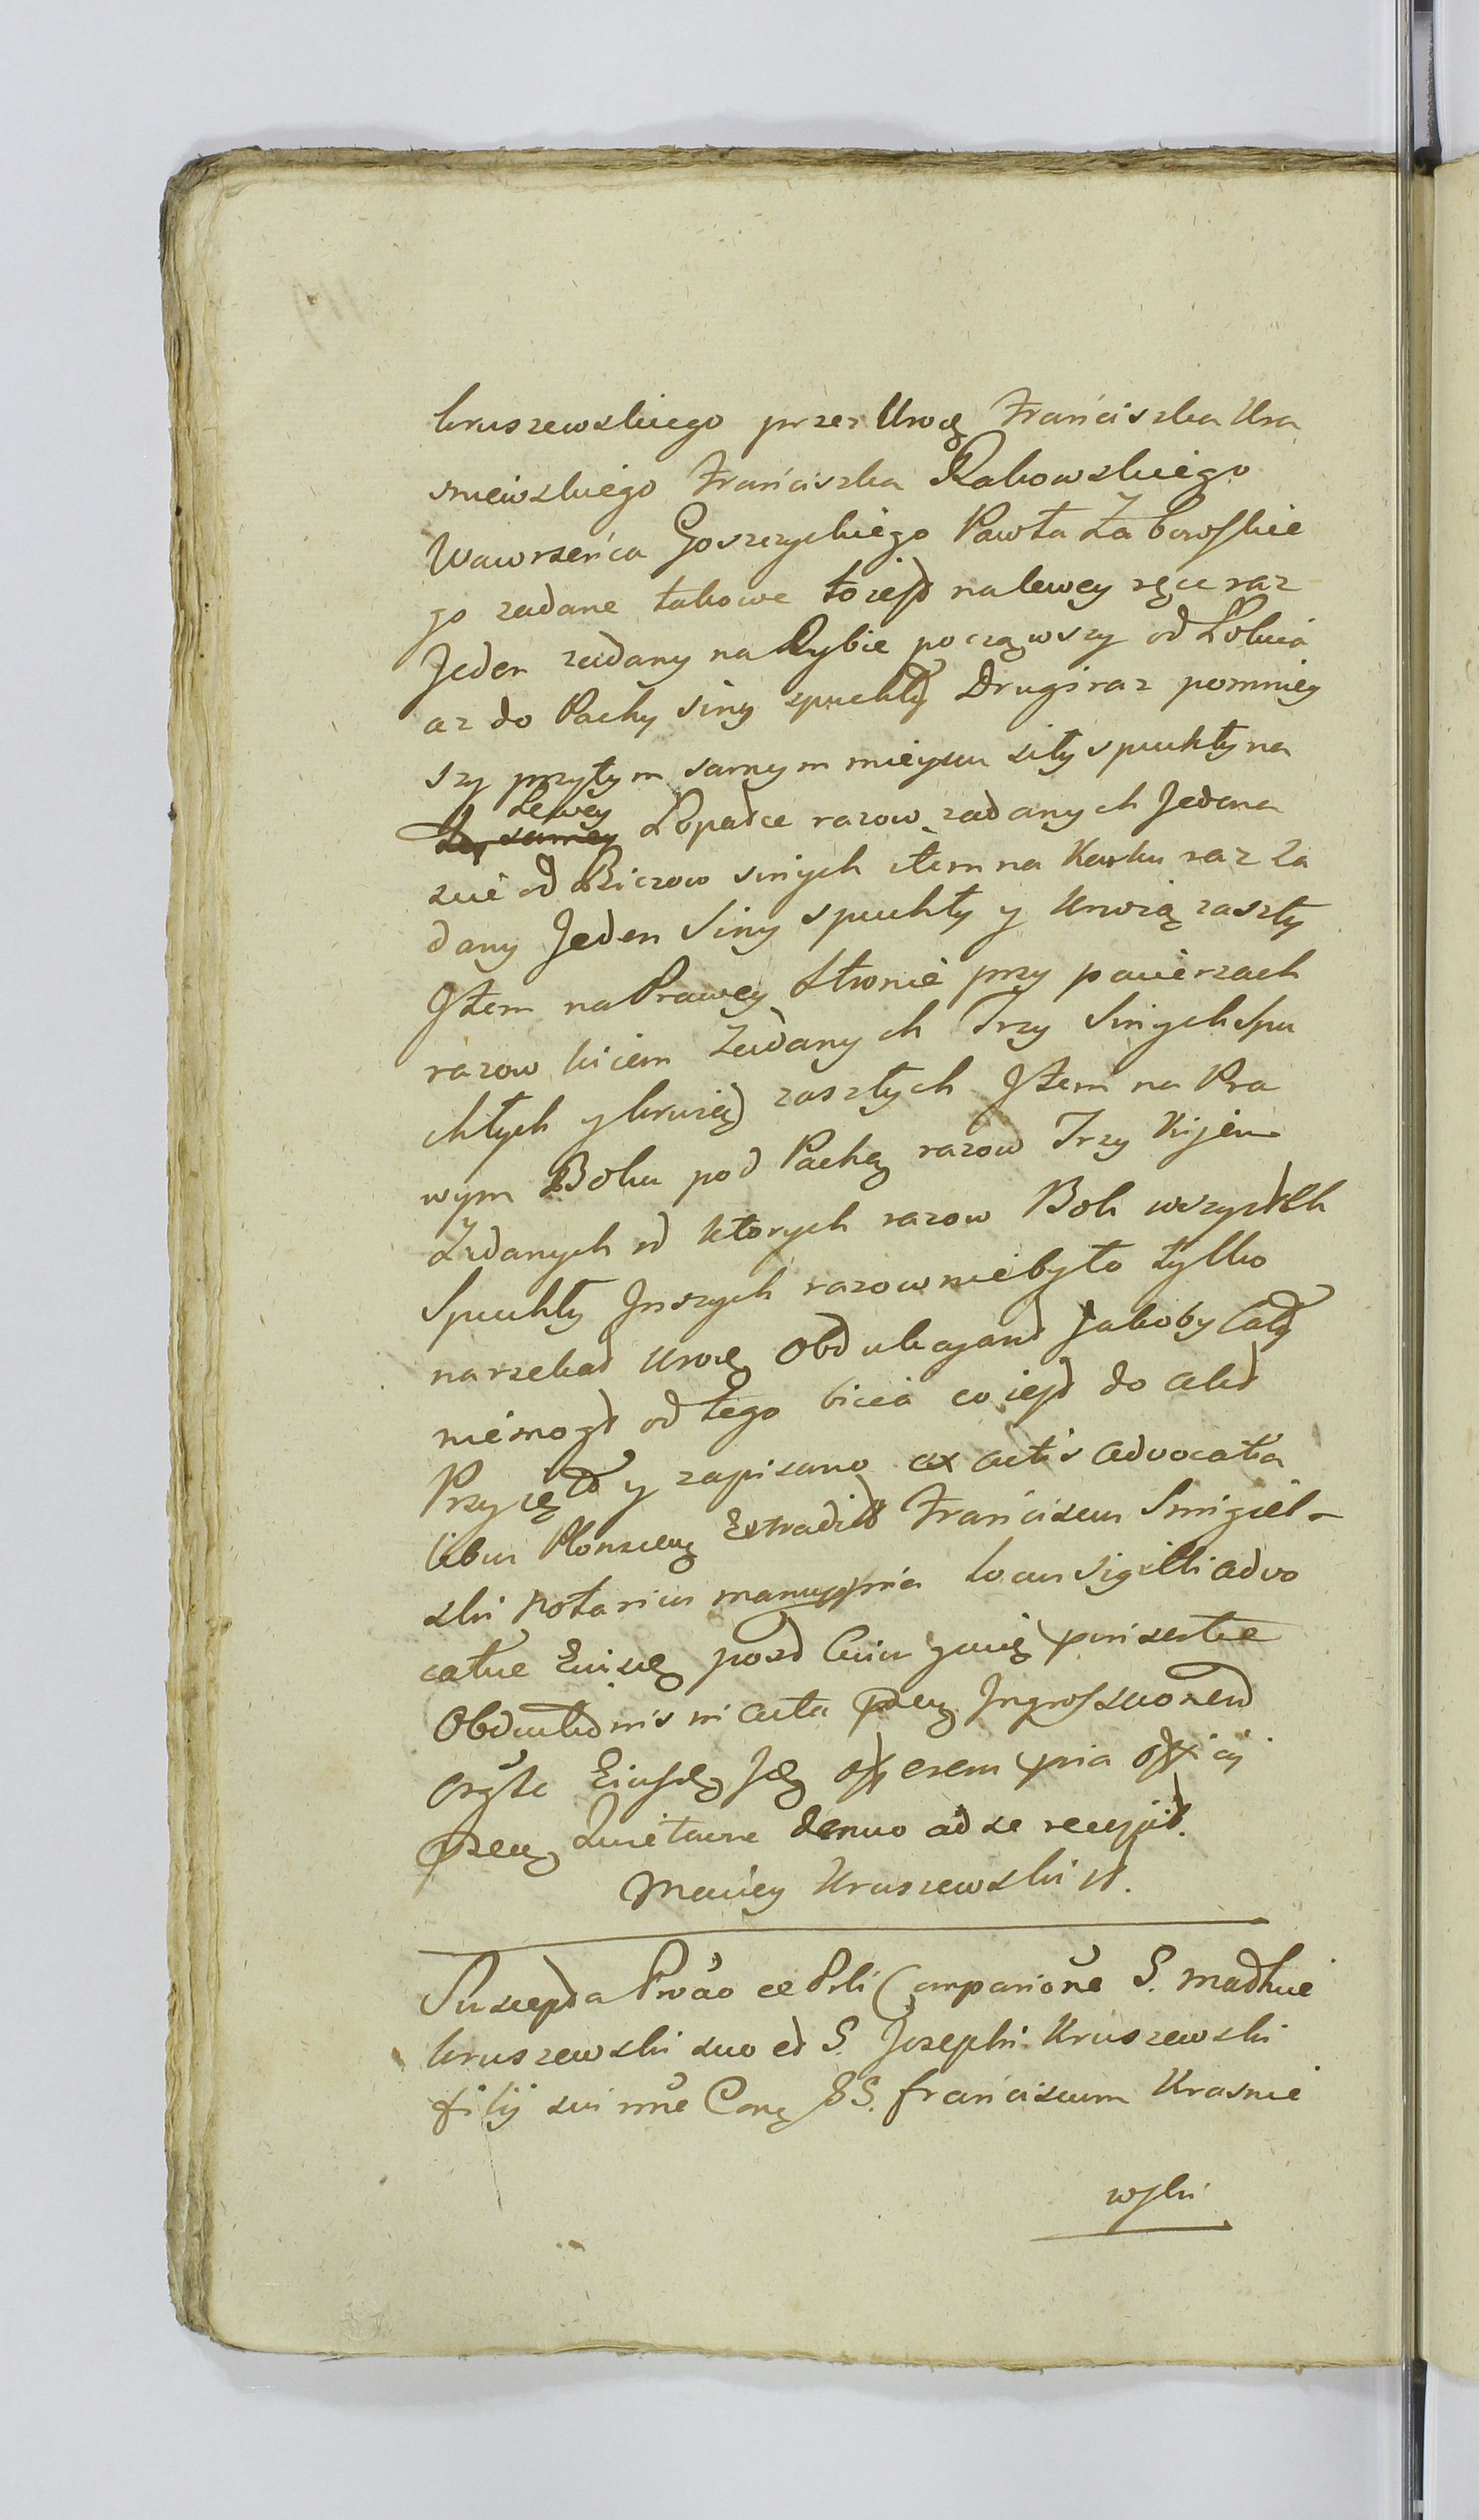 kruszewskiego przez Urodz Franciszka Kra
sniewskiego Franciszka Rakowskiego
Wawrzeńca Goszczyckiego Pawła Zaborowskie
go zadane takowe to iest na lewey ręce raz
Jeden zadany na Rybie począwszy od Łokcia
az do Pachy siny spuchły Drugi raz pomniey
szy przytym samym mieyscu siny spuchły na
Lewey
Łopatce razow zadanych Jedena
scie od Biczow sinych item na Karku raz za
dany Jeden Siny spuchły y krwią zaszły
Item na Prawey stronie przy pacierzach
razow kiiem zadanych Trzy sinych spu
chłych y krwią zaszłych Item na Pra
wym Boku pod Pachą razow Trzy Kijem
Zadanych od ktorych razow Bok wszystek
Spuchły Jnszych razow niebyło tylko
narzekał Urodz Obdukcyant Jakoby Cały
niemogł od tego bicia co iest do akt
Przyięto y zapisano ex actis advocatia
libus Plonscen Extradidit Franciscus Smigiel-
ski Notarius manuppria Locus Sigilli advo
catiae Eiusdem post Cuius quidem prinsertae
Obductionis in acta pntia Ingrossaonem
orgle Eiusdem Idem offerens pria officij
psen Quietauit denuo ad se recepit.
Maciey Kruszewski
Suscepta Prvao ce Prli Comparione S. Mathiae
kruszewski suo et S. Josephi Kruszewski
filij sui nne Cong SS. Franciscum Krasnie
wski